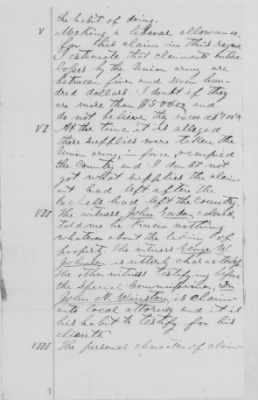 the habit of doing.
V Making a liberal allowance
for this claim in this regard
I estimate that claimants entire
losses by the Union army are
between five and seven hun
dred dollars. I doubt if they
are more than $500.00 and
do not believe they exceed $700.00
VI At the time it is alleged
these supplies were taken the
Union army, in force, occupied
the country and I do not
got what supplies the claim
ant had left after the
Rebels had left the country.
VII The witness, John
told me he knows nothing
whatever about the taking of
property. The witness George W.
Johnson is utterly characterless.
The other witness testifying before
the Special Commissioner, Dr
John N. Winston, is claim
ants local attorney and it is
his habit to testify for his
clients.
VIII The personal character of claim